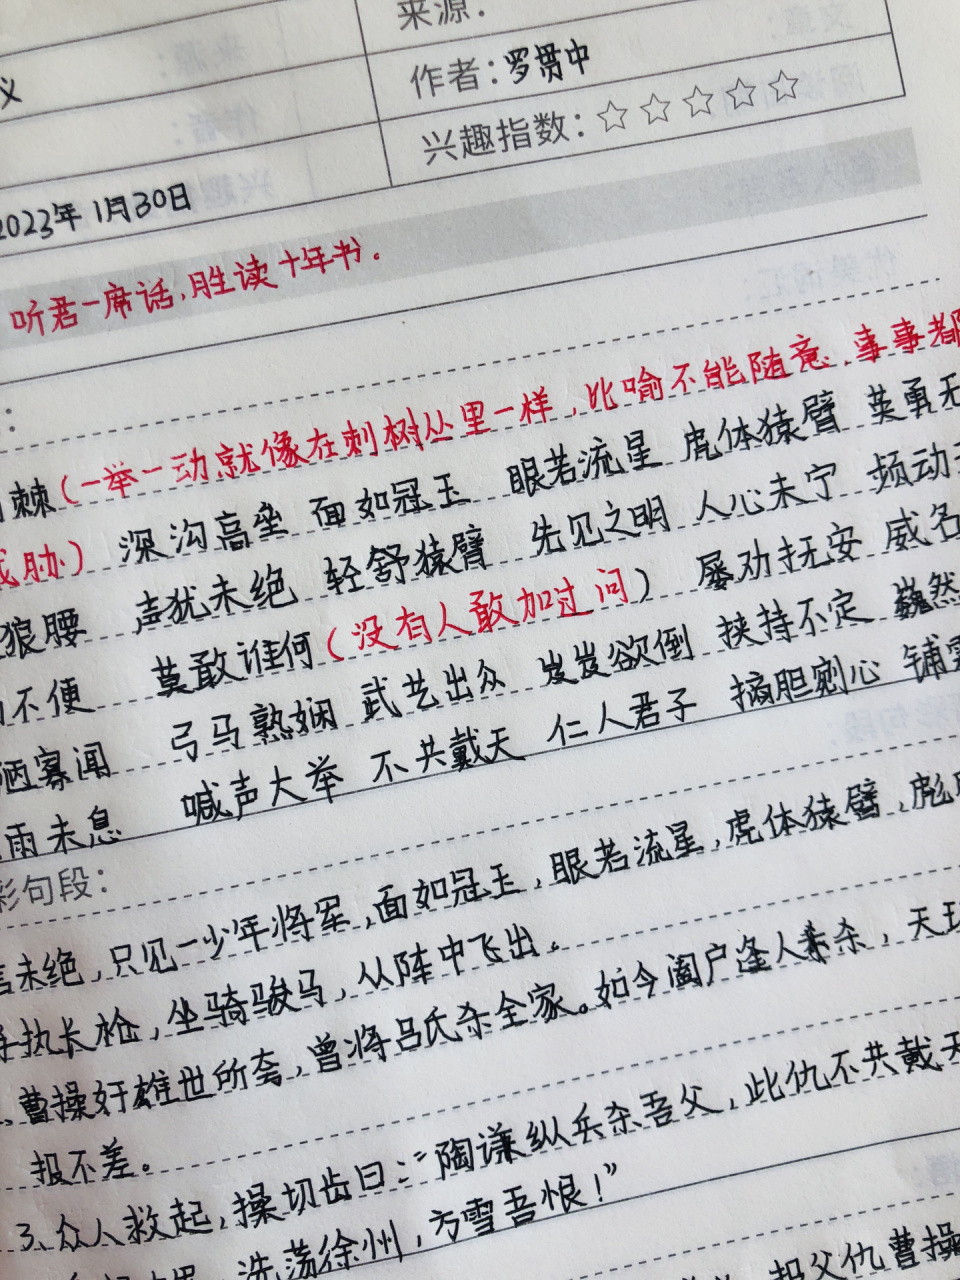 来源:
义 作者:罗贯中
兴趣指数:☆☆☆☆☆
2023年1月30日
听君一席话,胜读十年书.
:
棘(一举一动就像在刺树丛里一样,比喻不能随意,事事都
胁) 深沟高垒 面如冠玉 眼若流星 虎体猿臂 英勇无
狼腰 声犹未绝 轻舒猿臂 先见之明 人心未宁 频动
不便 莫敢谁何(没有人敢加过问) 屡劝抚安 威名
陋寡闻 弓马熟娴 武艺出众 岌岌欲倒 挟持不定 巍然
雨未息 喊声大举 不共戴天 仁人君子 摘胆剜心 铺
彩句段:
言未绝,只见一少年将军,面如冠玉,眼若流星,虎体猿臂,彪
手执长枪,坐骑骏马,从阵中飞出。
曹操奸雄世所夸,曾将吕氏杀全家。如今阖户逢人杀,天
报不差。
3、众人救起,操切齿曰:“陶谦纵兵杀吾父,此仇不共戴天
洗荡徐州,方雪吾恨!”
报父仇曹操